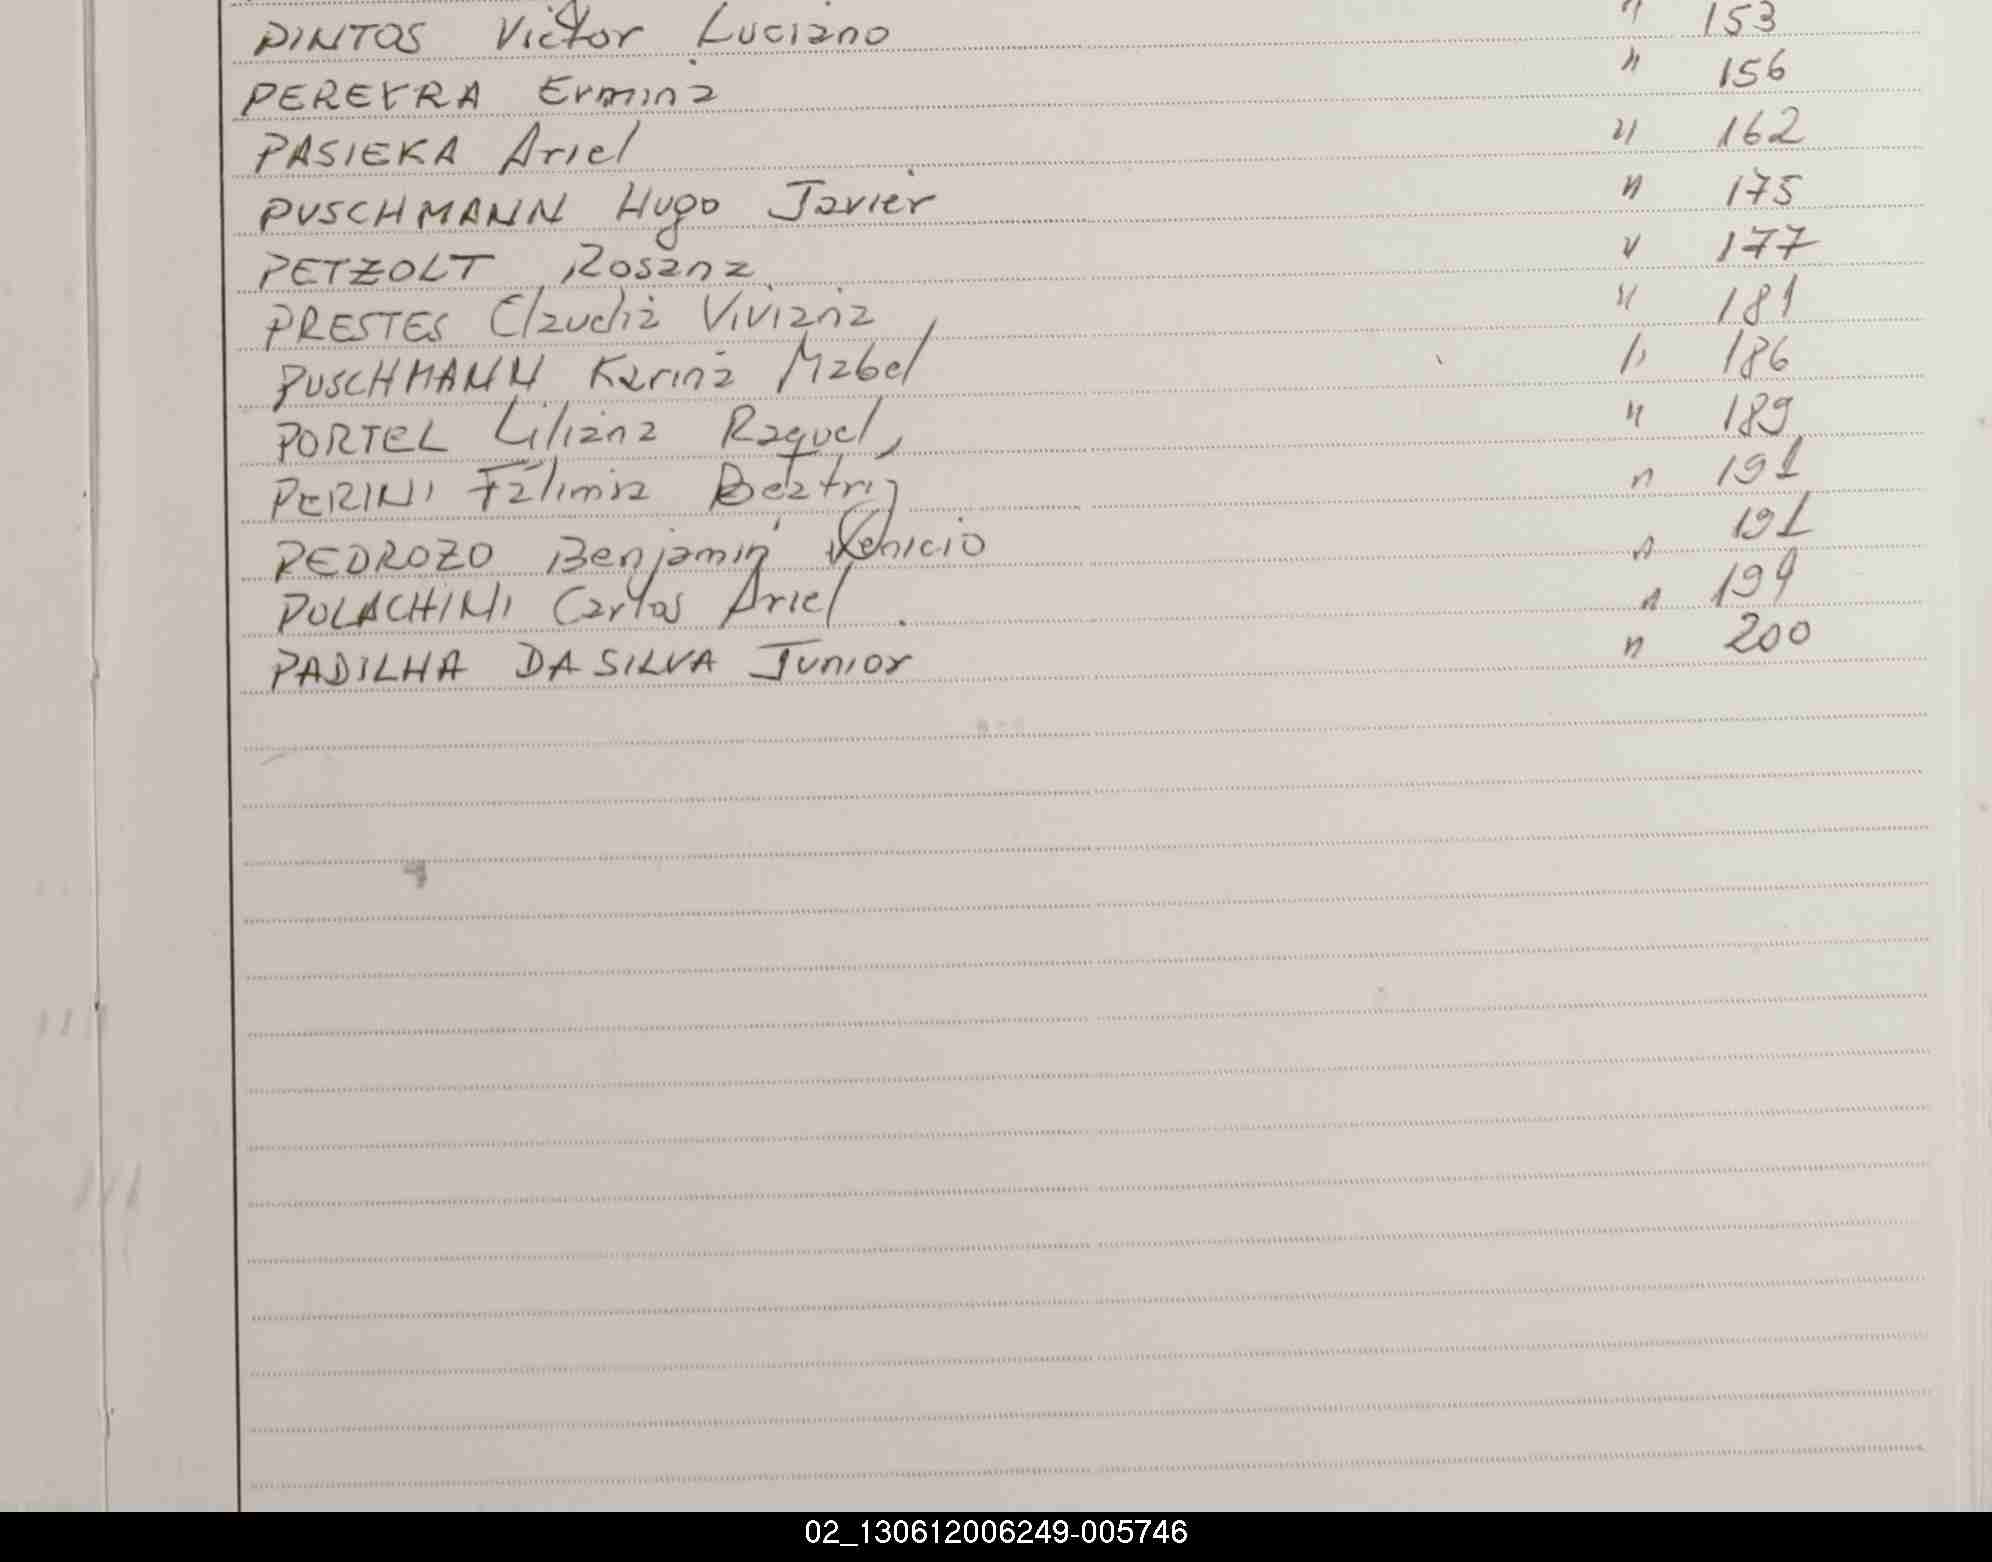 PINTOS Victor Luciano " 153
PEREYRA Ermina " 156
PASIEKA Ariel " 162
PUSCHMANN Hugo Javier " 175
PETZOLT Rosana " 177
PRESTES Claudia Viviana " 181
PUSCHMANN Karina Mabel " 186
PORTEL Liliana Raquel " 189
PERINI Beatriz " 191
PEDROZO Benjamin " 191
POLACHINI Carlos Ariel " 194
PADILHA DA SILVA Junior " 200
02_130612006249-005746